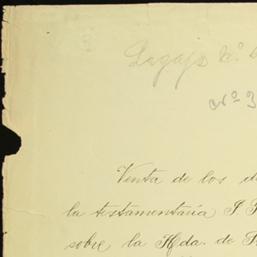 Legajo N.º
Nº 3
Venta de los d
la testamentaría J.
sobre la Hda. de